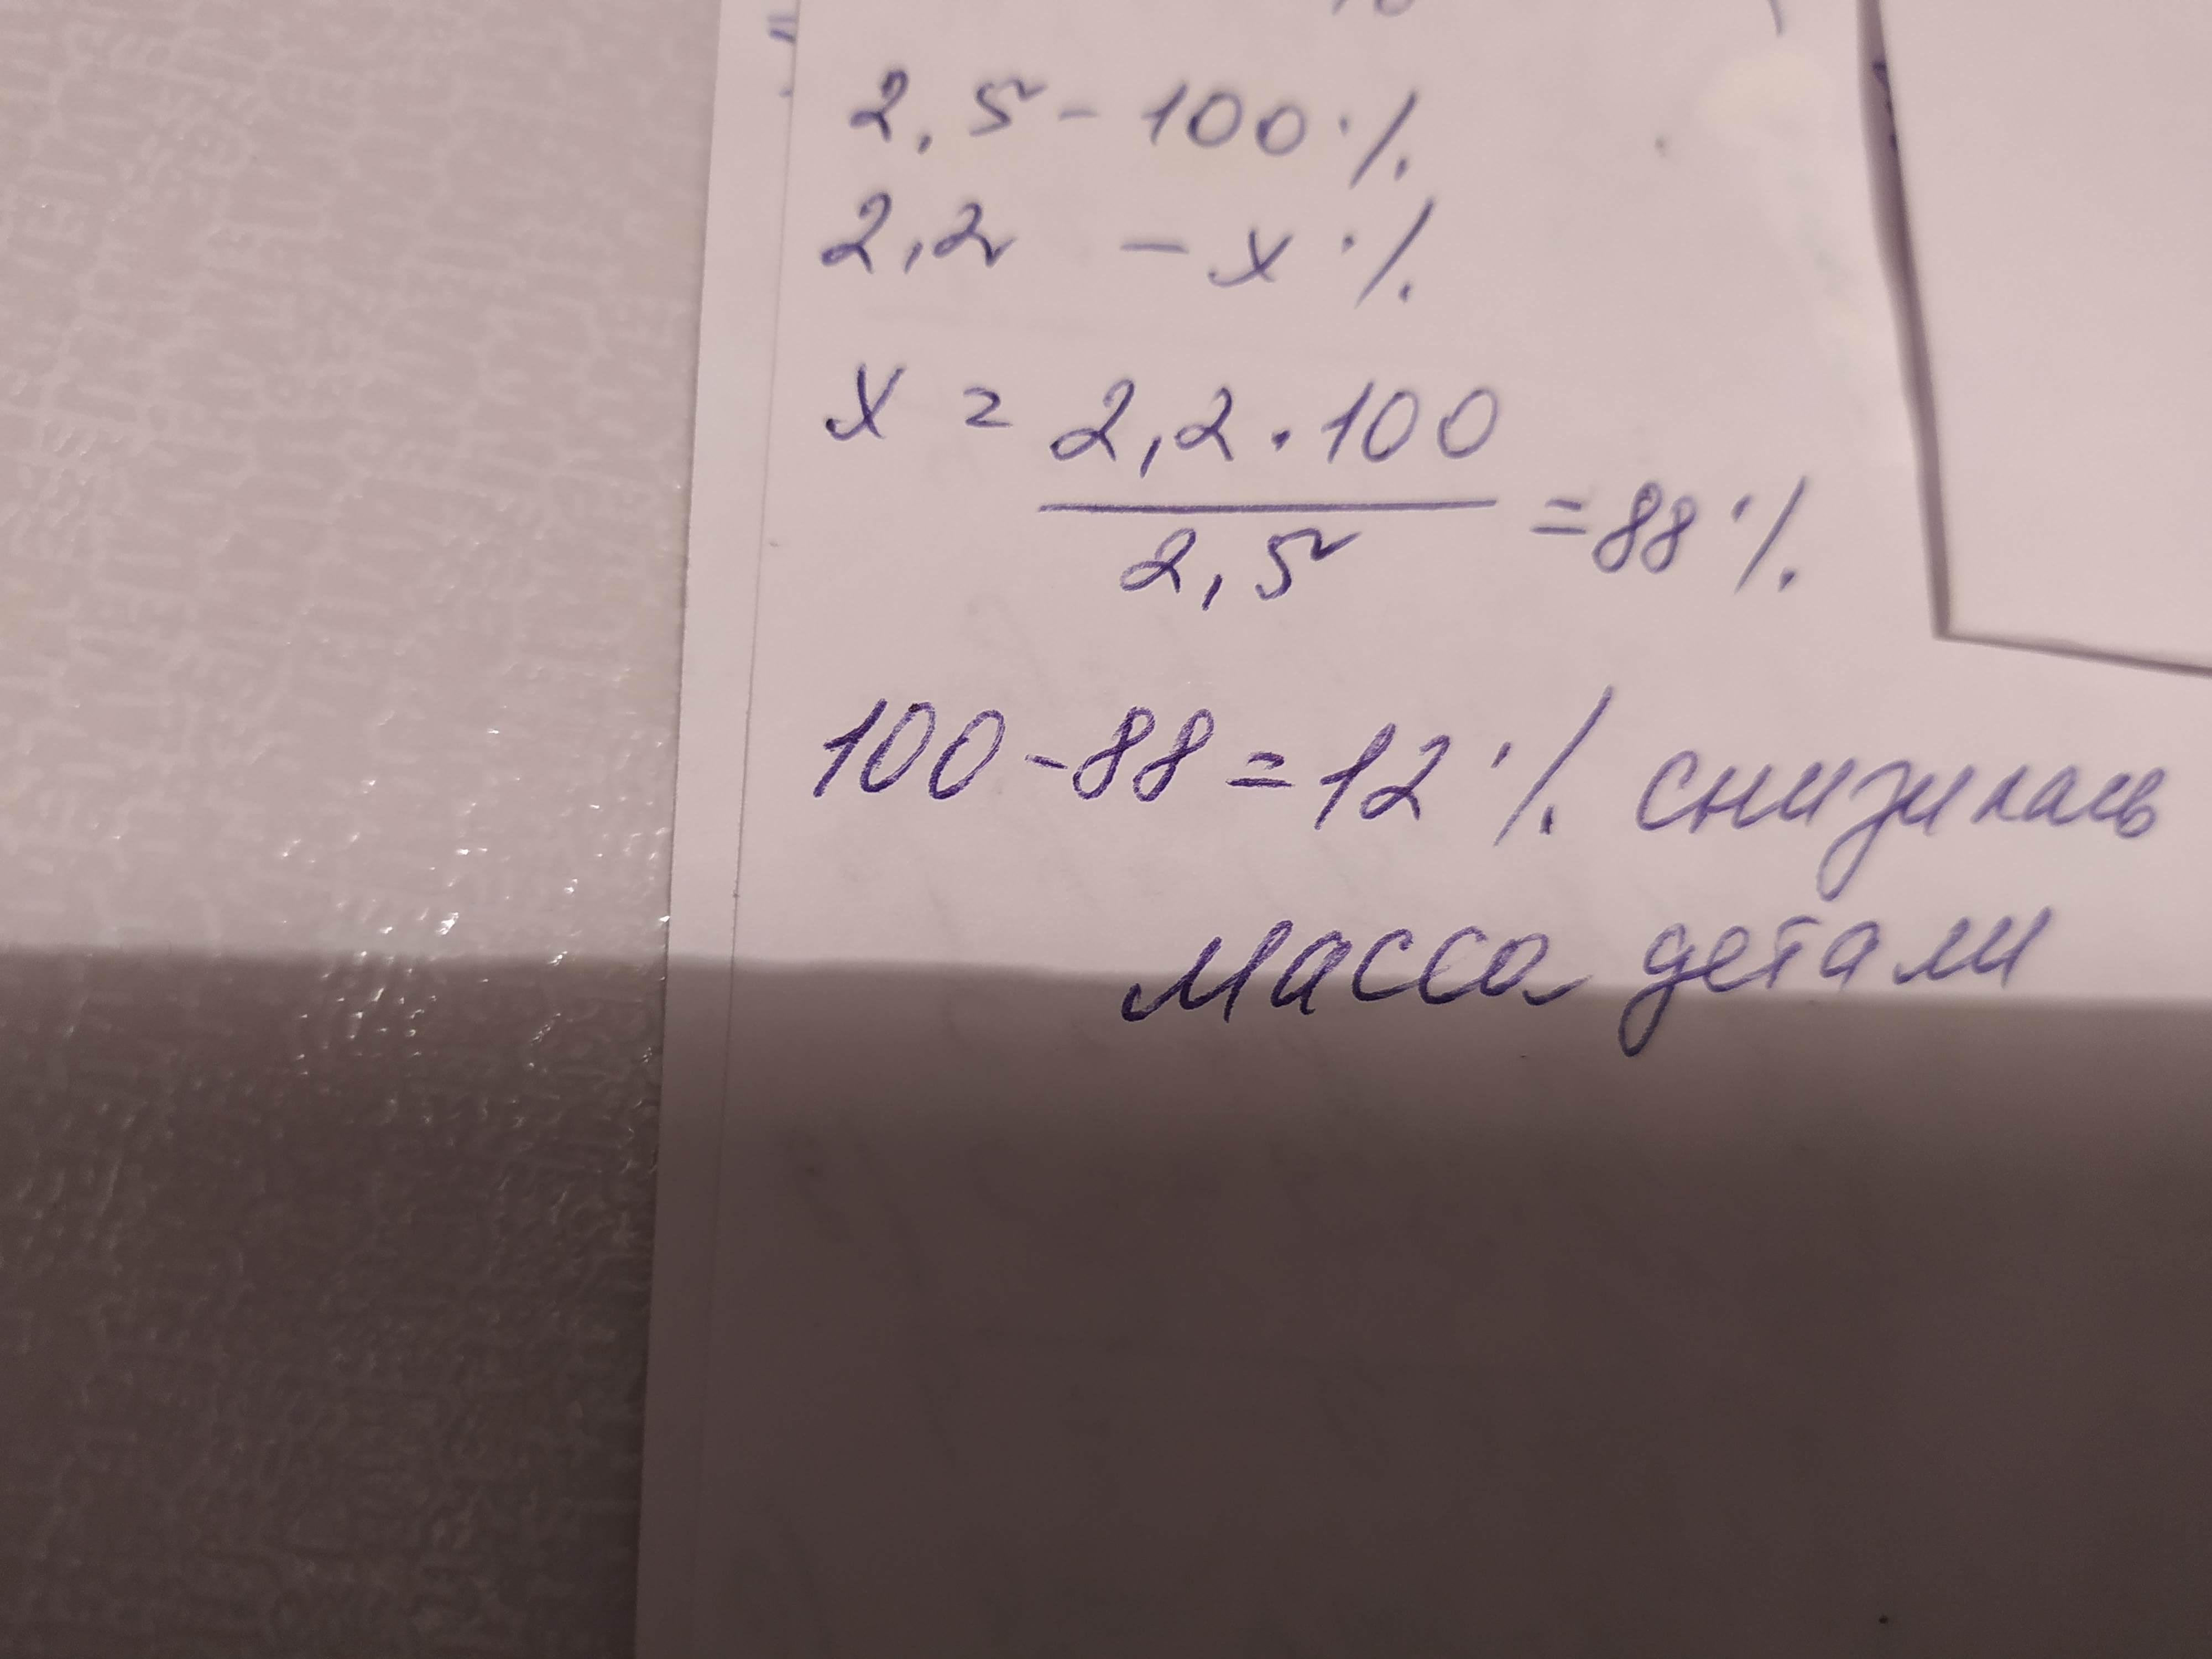 2,5 - 100%
2,2 - x %
x = 2,2 · 100
2,5
= 88%
100 - 88 = 12% снизилась
масса детали